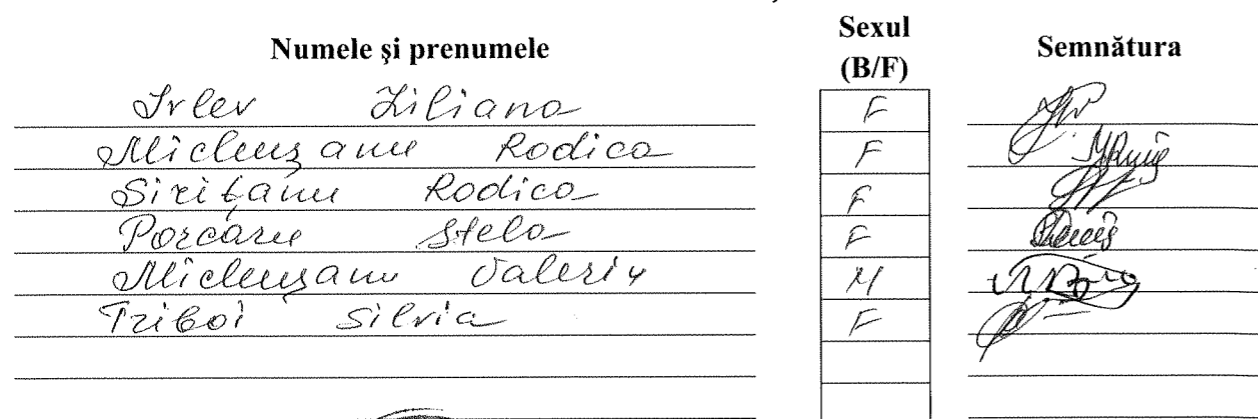 Numele și prenumele Sexul (B/F) Semnătura
Irlev Liliana F
Micleușanu Rodica F
Sirițanu Rodica F
Porcăru Stela F
Micleușanu Valeriu M
Triboi Silvia F